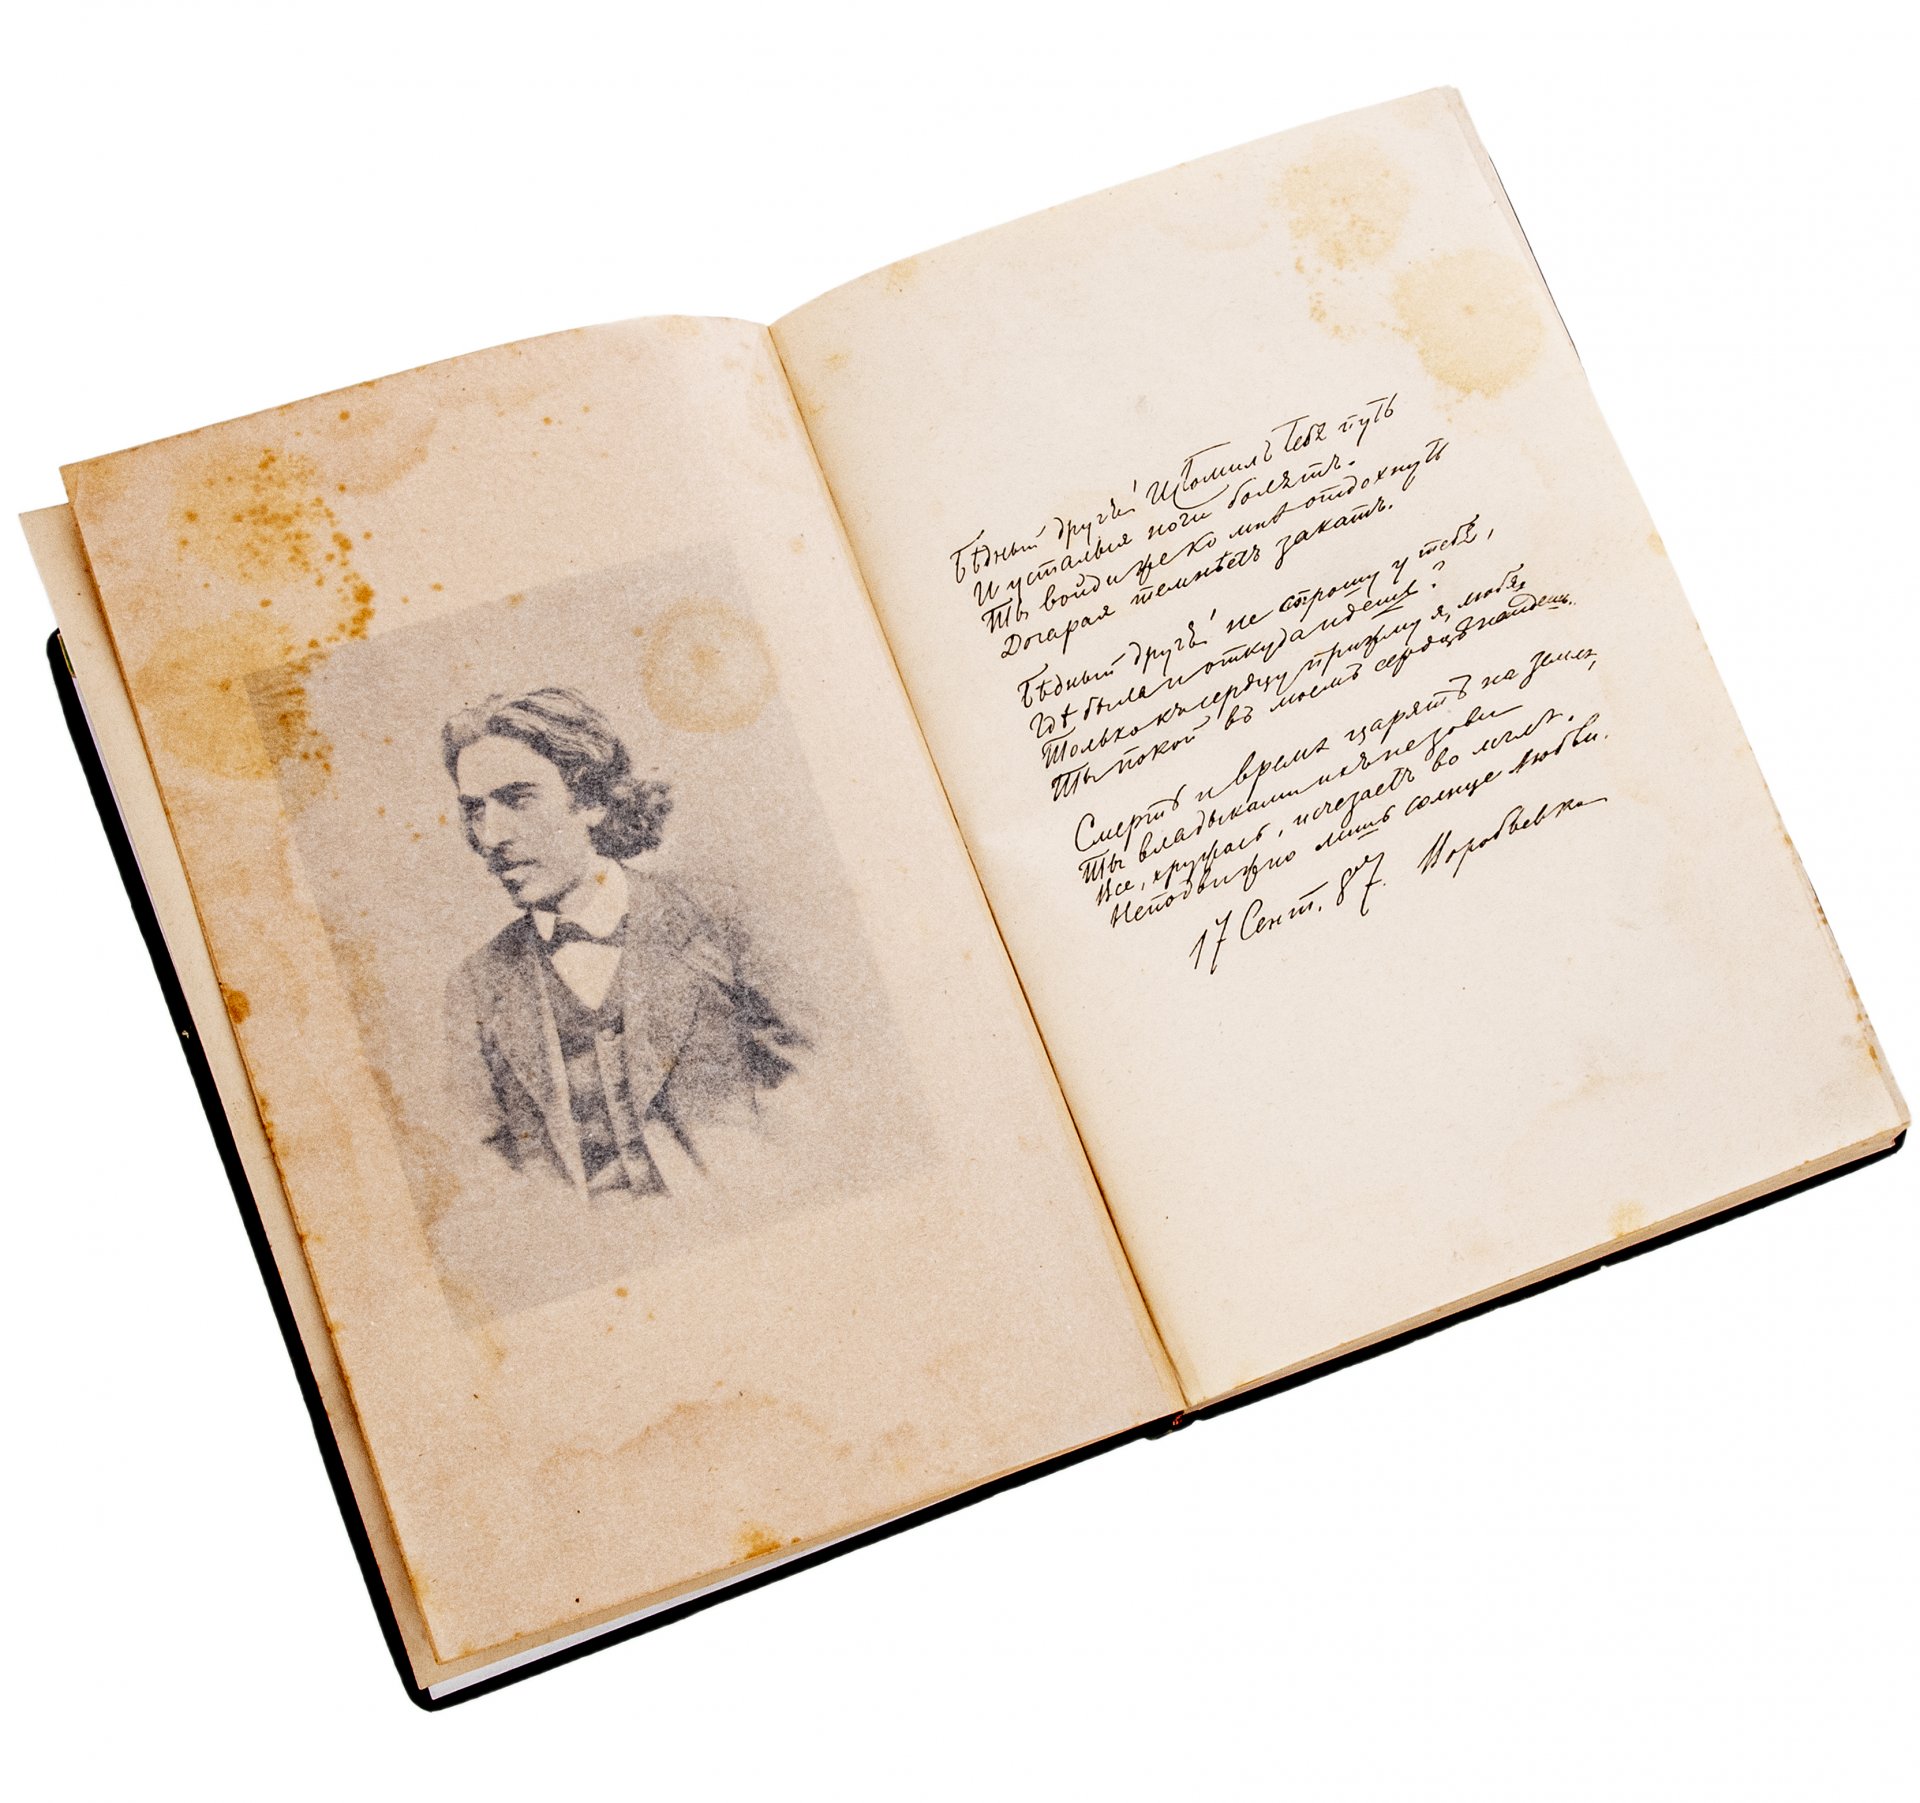 Бѣдный другъ! Истомилъ тебя путь
И усталыя ноги болятъ.
Ты войди же ко мнѣ отдохнуть
Догарая темнѣетъ закатъ.
Бѣдный другъ! не спрошу у тебя,
Гдѣ была и откуда идешь?
Только къ сердцу прижму я, любя,
Ты покой въ моемъ сердцѣ найдешь.
Смерть и время царятъ на землѣ,
Ты владыками ихъ не зови
Все, кружась, исчезаетъ во мглѣ.
Неподвижно лишь солнце любви.
17 Сент. 87. Воробьевка